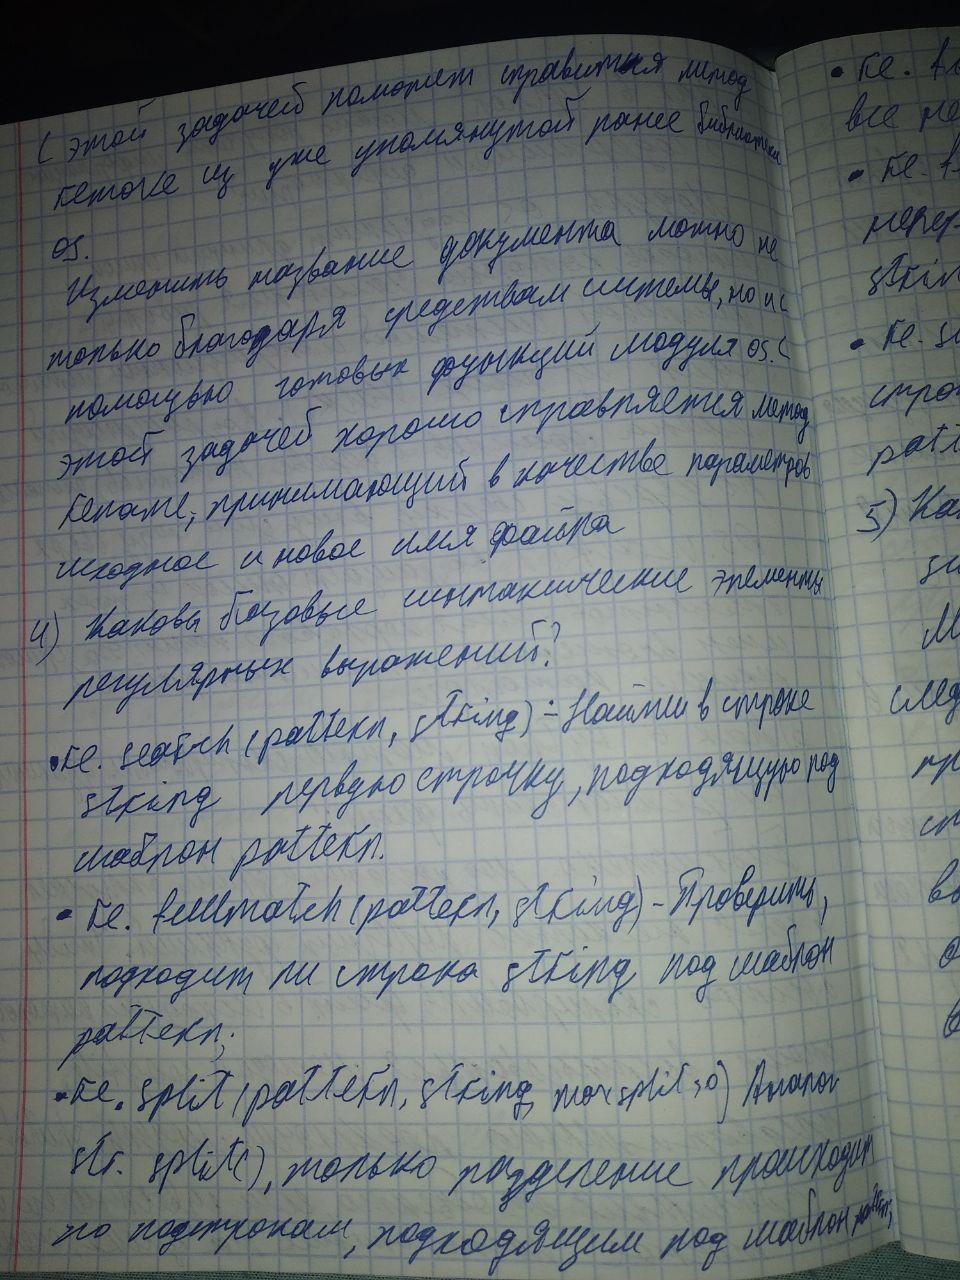 С этой задачей поможет справиться метод
remove из уже упомянутой ранее библиотеки
os.
Изменить название документа можно не
только благодаря средствам системы, но и с
помощью готовых функций модуля os. С
этой задачей хорошо справляется метод
rename, принимающий в качестве параметров
исходное и новое имя файла
4) Каковы базовые синтаксические элементы
регулярных выражений?
• re. search (pattern, string) - Найти в строке
string первую строчку, подходящую под
шаблон pattern.
• re. fullmatch (pattern, string) - Проверить,
подходит ли строка string под шаблон
pattern;
• re. split (pattern, string, maxsplit=0) Аналог
str. split(), только разделение происходит
по подстрокам, подходящим под шаблон pattern;
• re.
все
• re.
• re.
5)